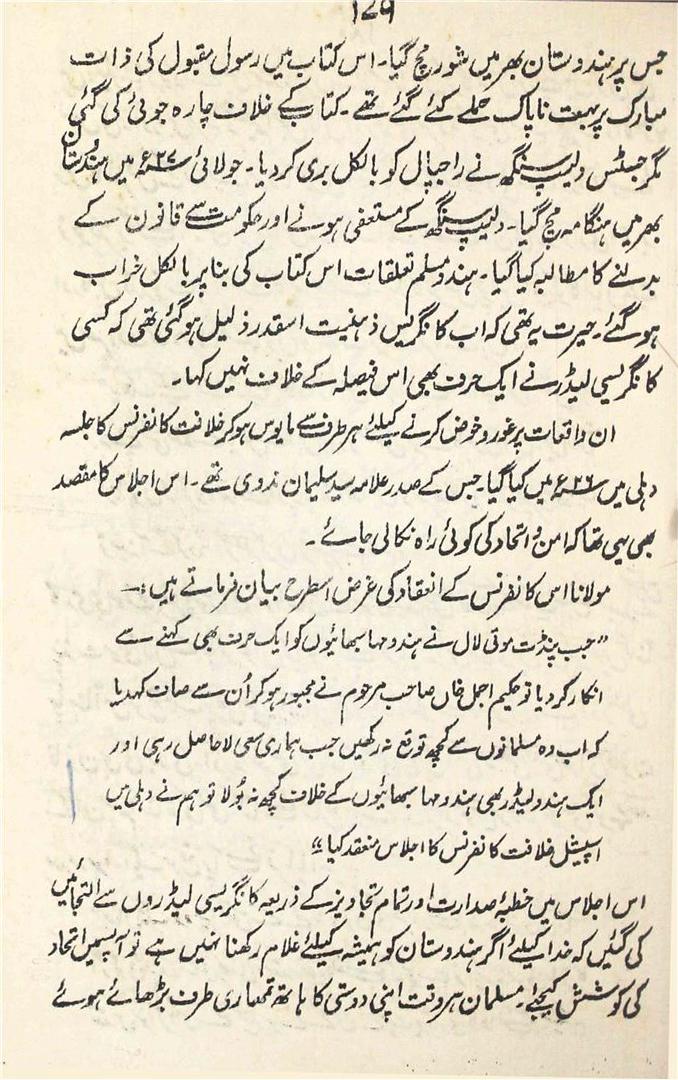 ۱۷۹
جس پر ہندوستان بھر میں شور مچ گیا۔ اس کتاب میں رسول مقبول کی ذات
مبارک پر بہت ناپاک حملے کئے گئے تھے۔ کتاب کے خلاف چارہ جوئی کی گئی
مگر جسٹس دلیپ سنگھ نے راجپال کو بالکل بری کر دیا۔ جولائی ۲۷ء میں ہندوستان
بھر میں ہنگامہ مچ گیا۔ دلیپ سنگھ کے مستعفی ہونے اور حکومت سے قانون کے
بدلنے کا مطالبہ کیا گیا۔ ہندو مسلم تعلقات اس کتاب کی بنا پر بالکل خراب
ہو گئے۔ حیرت یہ تھی کہ اب کانگریس ذہنیت اسقدر ذلیل ہو گئی تھی کہ کسی
کانگریسی لیڈر نے ایک حرف بھی اس فیصلہ کے خلاف نہیں کہا۔
ان واقعات پر غور و خوض کرنے کیلئے ہر طرف سے مایوس ہو کر خلافت کانفرنس کا جلسہ
دہلی میں ۲۶ء میں کیا گیا۔ جس کے صدر علامہ سید سلیمان ندوی تھے۔ اس اجلاس کا مقصد
بھی یہی تھا کہ امن و اتحاد کی کوئی راہ نکالی جائے۔
مولانا اس کانفرنس کے انعقاد کی غرض اسطرح بیان فرماتے ہیں:۔
"جب پنڈت موتی لال نے ہندو مہا سبھائیوں کو ایک حرف بھی کہنے سے
انکار کر دیا تو حکیم اجمل خاں صاحب مرحوم نے مجبور ہو کر اُن سے صاف کہدیا
کہ اب وہ مسلمانوں سے کچھ توقع نہ رکھیں جب ہماری سعی لا حاصل رہی اور
ایک ہندو لیڈر بھی ہندو مہا سبھائیوں کے خلاف کچھ نہ بولا تو ہم نے دہلی میں
اسپیشل خلافت کانفرنس کا اجلاس منعقد کیا"
اس اجلاس میں خطبۂ صدارت اور تمام تجاویز کے ذریعہ کانگریسی لیڈروں سے التجائیں
کی گئیں کہ خدا کیلئے اگر ہندوستان کو ہمیشہ کیلئے غلام رکھنا نہیں ہے تو آپسمیں اتحاد
کی کوشش کیجئے۔ مسلمان ہر وقت اپنی دوستی کا ہاتھ تمھاری طرف بڑھائے ہوئے